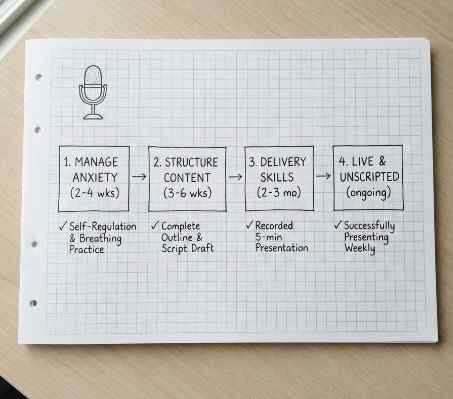 1. MANAGE
ANXIETY
(2-4 wks)
2. STRUCTURE
CONTENT
(3-6 wks)
3. DELIVERY
SKILLS
(2-3 mo)
4. LIVE &
UNSCRIPTED
(ongoing)
✓ Self-Regulation
& Breathing
Practice
✓ Complete
Outline &
Script Draft
✓ Recorded
5-min
Presentation
✓ Successfully
Presenting
Weekly